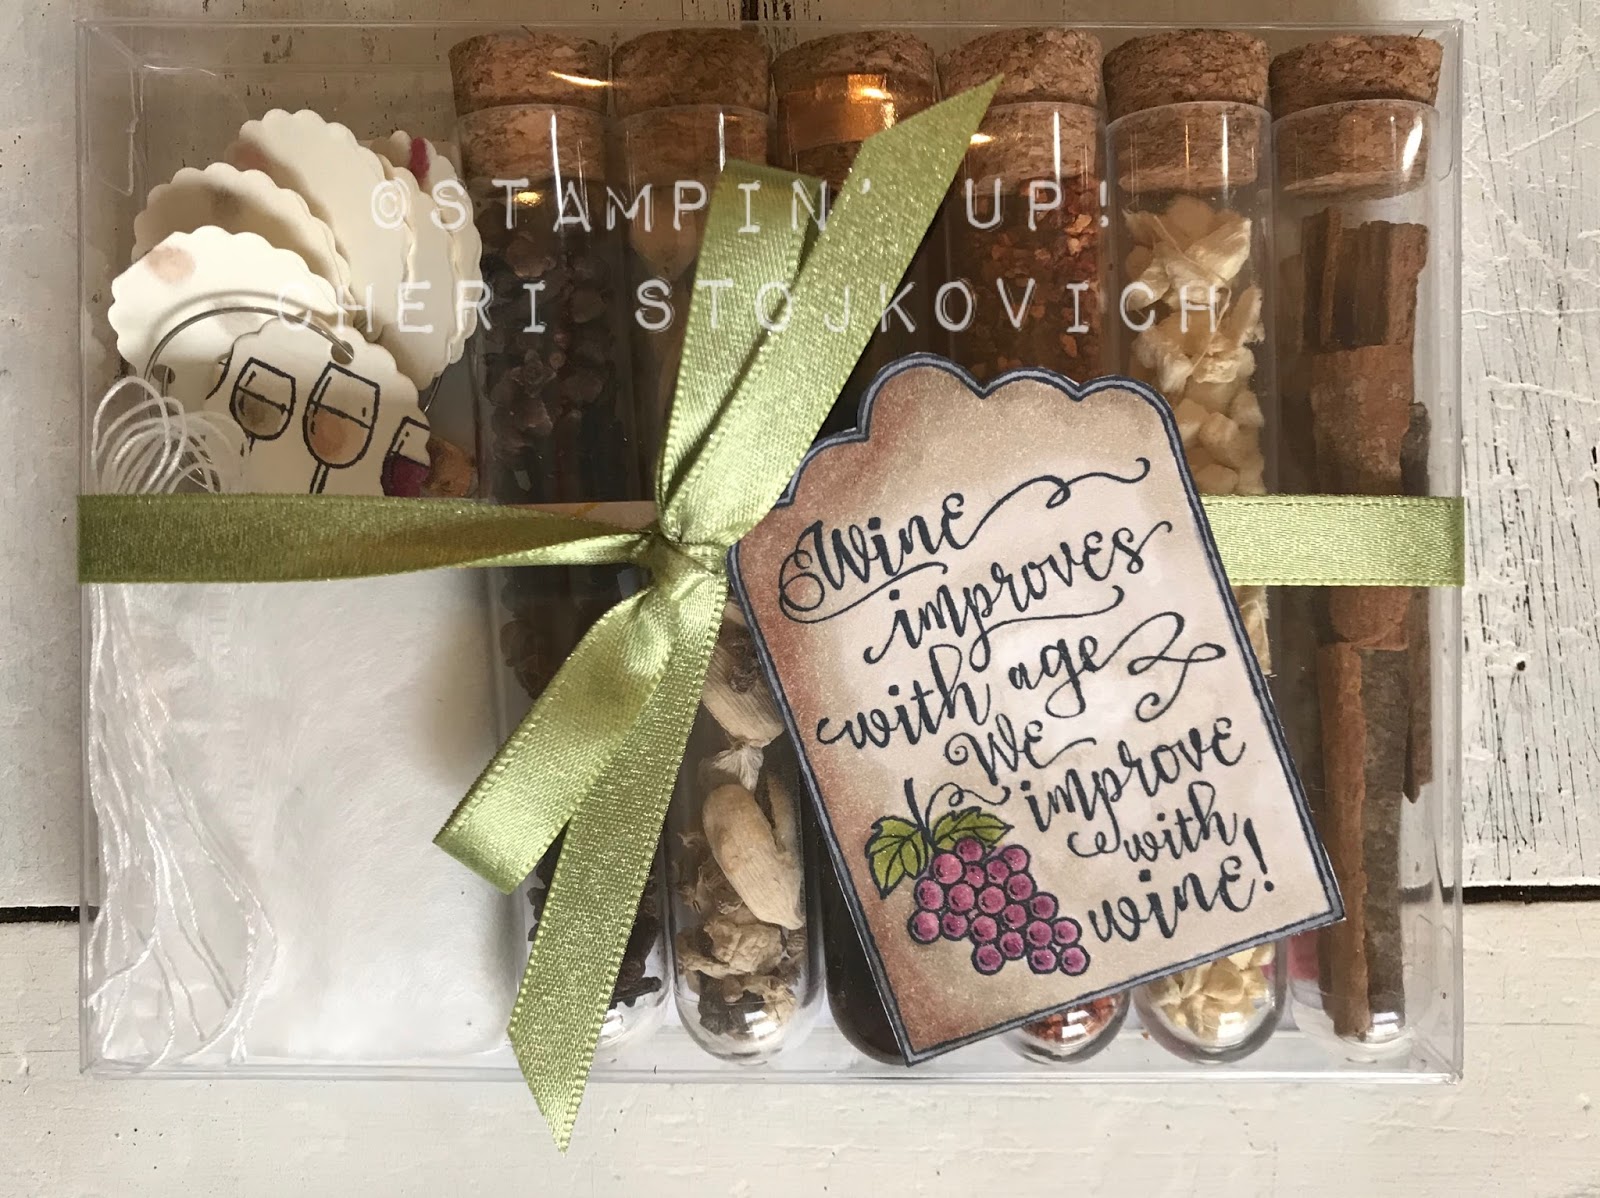 ©STAMPIN' UP!
CHERI STOJKOVICH
Wine
improves
with age
We
improve
with
wine!